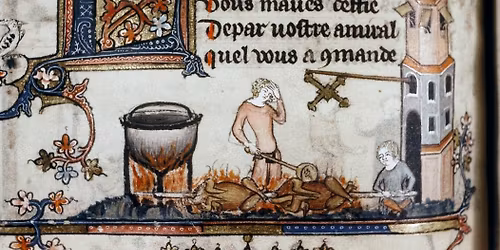 Vous maues ceste
Depar uostre amiral
quel vous a 9mande